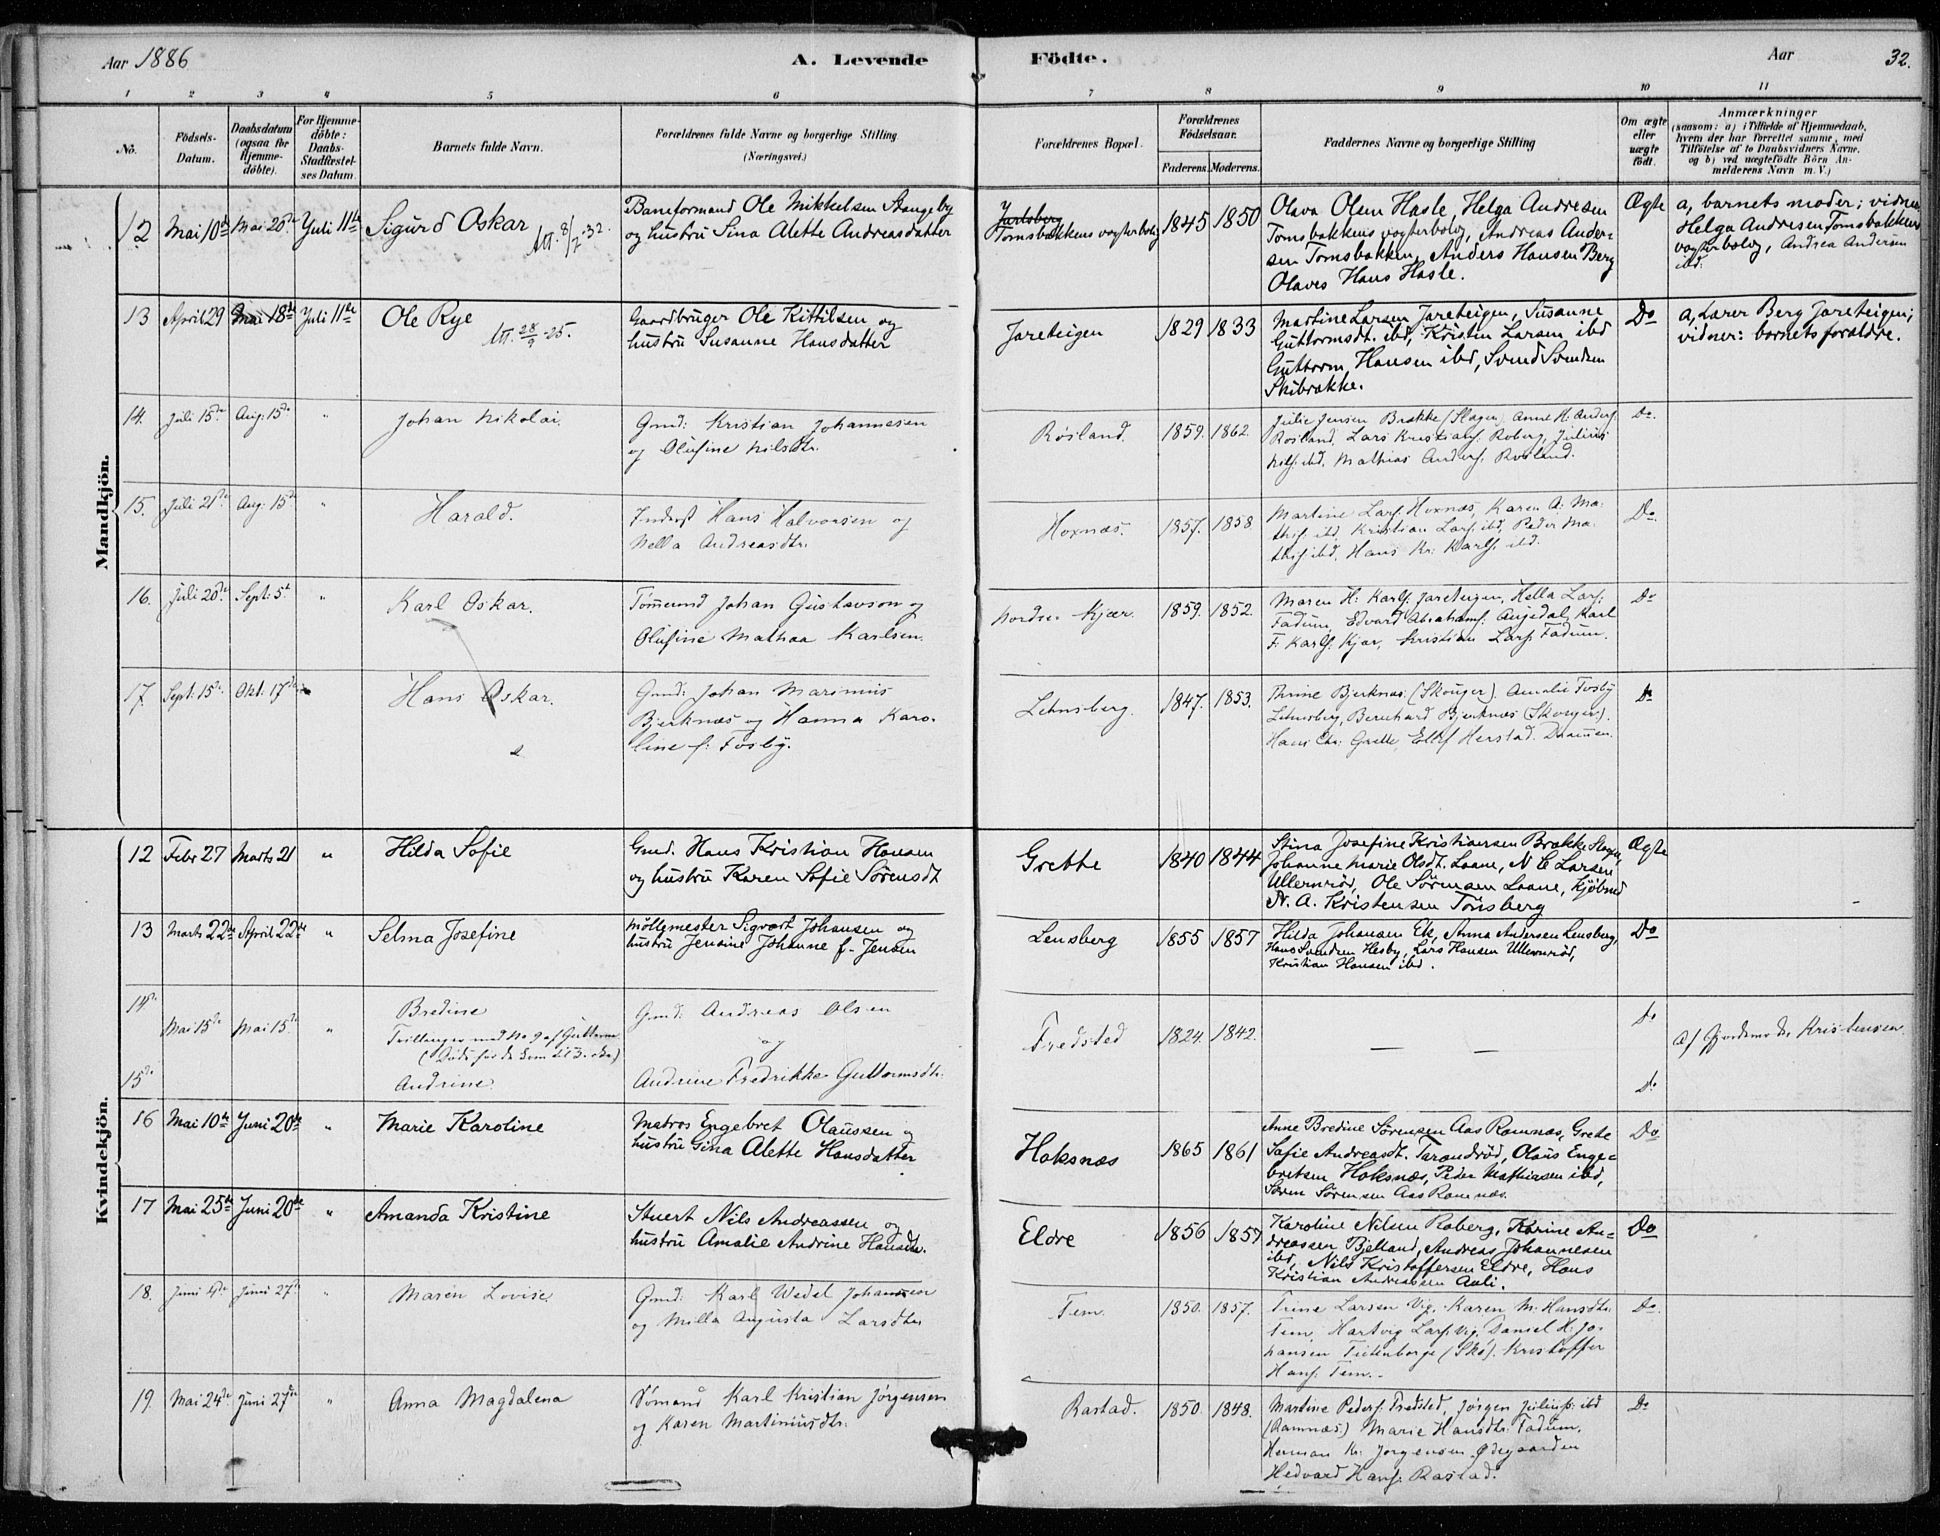 Aar 1886
A. Levende Födte.
Aar
32.
1 2 3 4 5 6 7 8 9 10 11
No.
Födsels-Datum.
Daabsdatum (ogsaa for Hjemmedöbte).
For Hjemmedöbte: Daabs-Stadfæstelses Datum.
Barnets fulde Navn.
Forældrenes fulde Navne og borgerlige Stilling (Næringsvei.)
Forældrenes Bopæl.
Forældrenes Födselsaar.
Faderens. Moderens.
Faddernes Navne og borgerlige Stilling
Om ægte eller uægte födt.
Anmærkninger
(saasom: a) i Tilfælde af Hjemmedaab,
hvem der har forrettet samme, med
Tilföielse af to Daabsvidners Navne,
og b) ved uægtefödte Börn An-
melderens Navn m. V.)
Mandkjön.
12 Mai 10de Mai 20de Juli 11te Sigurd Oskar Att. 8/7-32.
Baneformand Ole Mikkelsen Stangeby
og hustru Sina Alette Andreasdatter
Jarlsberg
Tomsbakkens vogterbolig 1845 1850
Olava Olsen Hasle, Helga Andresen
Tomsbakkens vogterbolig, Andreas Ander-
sen Tomsbakken, Anders Hansen Berg
Olaves Hans Hasle.
Ægte
a, barnets moder; vidner
Helga Andresen Tomsbakkens
vogterbolig, Andrea Andersen
ibd.
13 April 29 Mai 18de Juli 11te Ole Rye Att. 28/9-25.
Gaardbruger Ole Kittilsen og
hustru Susanne Hansdatter
Jareteigen 1829 1833
Martine Larsen Jareteigen, Susanne
Guttormsdt. ibd, Kristin Larsen ibd
Guttorm Hansen ibd, Svend Svendsen
Skibrakke.
Do
a, Lærer Berg Jareteigen;
vidner: barnets forældre.
14. Juli 15de Aug: 15de " Johan Nikolai.
Gmd: Kristian Johannesen
og Olufine Nilsdtr.
Rösland. 1859. 1862.
Julie Jensen Brække (Slagen) Anne H. Anders.
Rosland, Lars Kristians. Roberg, Julius
Nils. ibd. Mathias Anders. Rosland.
Do.
15. Juli 21de Aug: 15de " Harald.
Inderst Hans Halvorsen og
Nella Andreasdtr.
Hoxnæs. 1857. 1858
Martine Lars. Hoxnæs, Karen A. Ma-
this. ibd. Kristian Lars. ibd, Peder Ma-
this. ibd. Hans Kr: Karls. ibd.
Do.
16. Juli 20de Sept: 5te " Karl Oskar.
Tömmerd Johan Gustavson og
Olufine Mathea Karlsen.
Nordre Kjær. 1859. 1852.
Maren H: Karls. Jareteigen, Hella Lars.
Fadum, Edvard Abrahams. Augedal, Karl
F. Karls. Kjær, Kristian Lars. Fadum.
Do
17. Sept: 15de Okt: 17de Hans Oskar.
Gmd: Johan Marinius
Bjerknæs og Hanna Karo-
line f: Fosby.
Lehnsberg. 1847. 1853.
Thrine Bjerknæs (Skouger). Amalie Fosby
Lehnsberg, Bernhard Bjerknæs (Skouger).
Hans Chr: Grette, Ellef Herstad. Drammen.
Do
Kvindekjön.
12 Febr 27 Marts 21 " Hilda Sofie
Gmd. Hans Kristian Hansen
og hustru Karen Sofie Sörensdt
Grette 1840 1844
Stina Josefine Kristiansen Brække Slagen,
Johanne Marie Olsdt. Laane, N C Larsen
Ullernröd, Ole Sörensen Laane, Kjöbmd
N. A. Kristensen Tönsberg
Ægte
13 Marts 22de April 22de " Selma Josefine
Möllemester Sigvart Johansen og
hustru Jensine Johanne f. Jensen
Lensberg 1855 1857
Hilda Johansen Ek, Anna Andersen Lensberg,
Hans Svendsen Hesby, Lars Hansen Ullernröd,
Kristian Hansen ibd.
Do
14de Mai 15de Mai 15de " Bredine
Trillinger med No 9 af Gutterne
15de Andrine
Gmd: Andreas Olsen
og
Andrine Fredrikke Guttormsdtr.
Fredsted 1824. 1842.
— —
Do
Do
a/ Gjordemoder Kristensen
16 Mai 10de Juni 20de " Marie Karoline
Matros Engebret Olaussen og
hustru Gina Alette Hansdatter
Hoksnæs 1865 1861
Anne Bredine Sörensen Aas Ramnæs, Grete
Sofie Andreasdt. Tarandröd, Olaus Enge-
bretsen Hoksnæs, Peder Mathiesen ibd,
Sören Sörensen Aas Ramnæs.
Do
17 Mai 25de Juni 20de " Amanda Kristine
Stuert Nils Andreassen og
hustru Amalie Andrine Hansdt.
Eldre 1856 1857
Karoline Nilsen Roberg, Karine An-
dreassen Bjelland, Andreas Johannesen
ibd, Nils Kristoffersen Eldre, Hans
Kristian Andreassen Auli.
Do
18. Juni 4de Juni 27de " Maren Lovise
Gmd: Karl Wedel Johansen
og Milla Augusta Larsdtr
Tem. 1850. 1857.
Trine Larsen Vig, Karen M: Hansdtr
Tem, Hartvig Lars. Vig, Daniel H: Jo-
hansen (Skö). Kristoffer
Hans. Tem.
Do.
19. Mai 24de Juni 27de " Anna Magdalena
Sömand Karl Kristian Jörgensen
og Karen Martiniusdtr.
Rastad. 1850. 1848.
Martine Peders. Fredsted, Jörgen Julius. ibd
(Ramnæs) Marie Hansdtr. Fadum,
Herman Kr: Jorgensen Ödegaarden
Hedvard Hans. Rastad.
Do